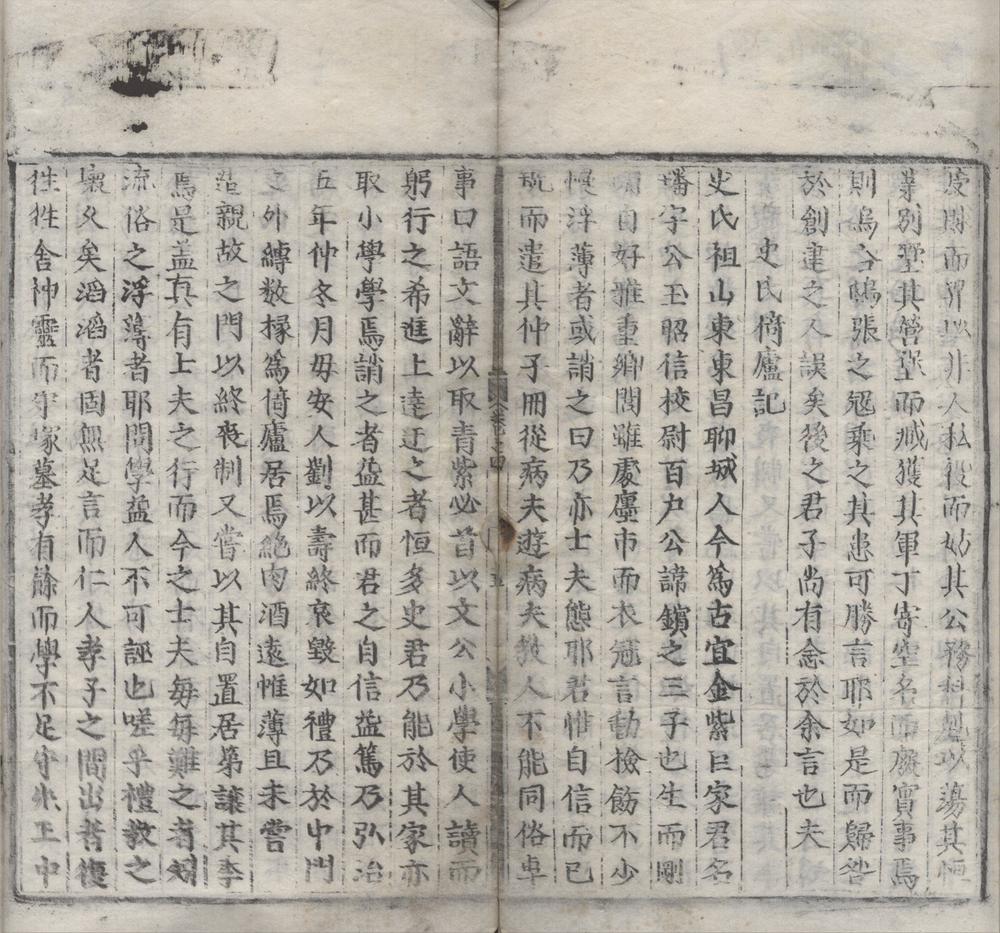 役閒而習以非人私役而妨其公務利以蕩其恒
業別墅其營壘而臧獲其軍丁寄空名而廢實事焉
則烏合鴟張之冦乘之其患可勝言耶如是而歸咎
於創建之人誤矣後之君子尚有念於余言也夫
史氏倚廬記
史氏祖山東東昌聊城人今爲古宜金紫巨家君名
璠字公玉昭信校尉百戶公諱鑌之三子也生而剛
自好雅重鄉閭雖處廛市而衣冠言動檢飭不少
慢浮薄者或誚之曰乃亦士夫態耶君惟自信而已
旣而遣其仲子冊從病夫遊病夫敎人不能同俗卓
事口語文辭以取青紫必首以文公小學使人讀而
躬行之希進上達迂之者恒多史君乃能於其家亦
取小學學焉誚之者益甚而君之自信益篤乃弘治
五年仲冬月毋安人劉以壽終哀毀如禮乃於中門
之外縳數椽爲倚廬居焉絶肉酒遠帷薄且未嘗
造親故之門以終丧制又嘗以其自置居第讓其季
焉是盖真有士夫之行而今之士夫每每難之者矧
流俗之浮薄者耶問學益人不可誣也嗟乎禮敎之
壞乆矣滔滔者固無足言而仁人孝子之間出者復
徃徃舍神靈而守塚墓孝有餘而學不足守
卷之四
五